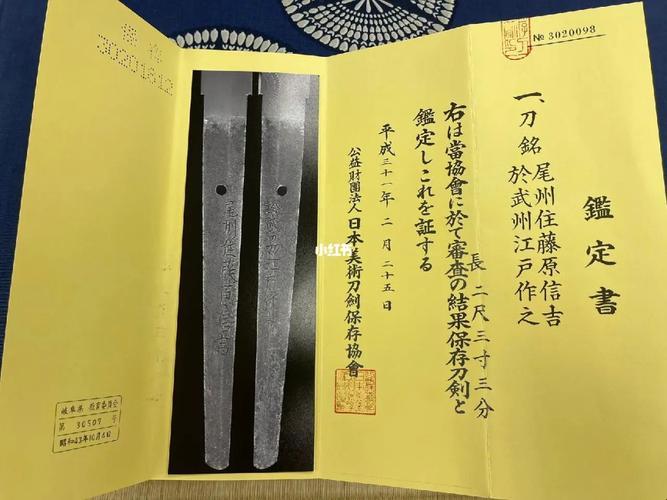 № 3020098
鑑定書
一、刀 銘 尾州住藤原信吉
於武州江戸作之
長 二尺三寸三分
右は當協會に於て審査の結果保存刀劍と
鑑定しこれを証する
平成三十一年 二月 二十五日
公益財團法人 日本美術刀劍保存協會
小红书
尾州住藤原信吉
於武州江戸作之
岐阜県 教育委員会
第 30507 号
昭和43年10月4日